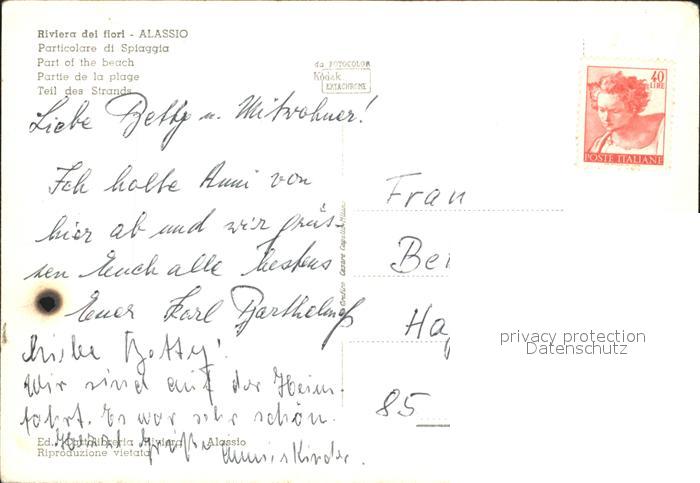 Riviera dei fiori - ALASSIO
Particolare di Spiaggia
Part of the beach
Partie de la plage
Teil des Strands
da FOTOCOLOR
Kodak
EKTACHROME
40
LIRE
POSTE ITALIANE
Liebe Betty u. Mitwohner!
Ich holte Anni von
hier ab und wir grüs-
sen Euch alle bestens
Euer Karl Barthelmeß
Liebe Betty!
Wir sind auf der Heim-
fahrt. Es war sehr schön.
Herzl. Grüße
Ed. Cartolibreria Riviera - Alassio
Riproduzione vietata
Frau
Be
Ha
85
privacy protection
Datenschutz